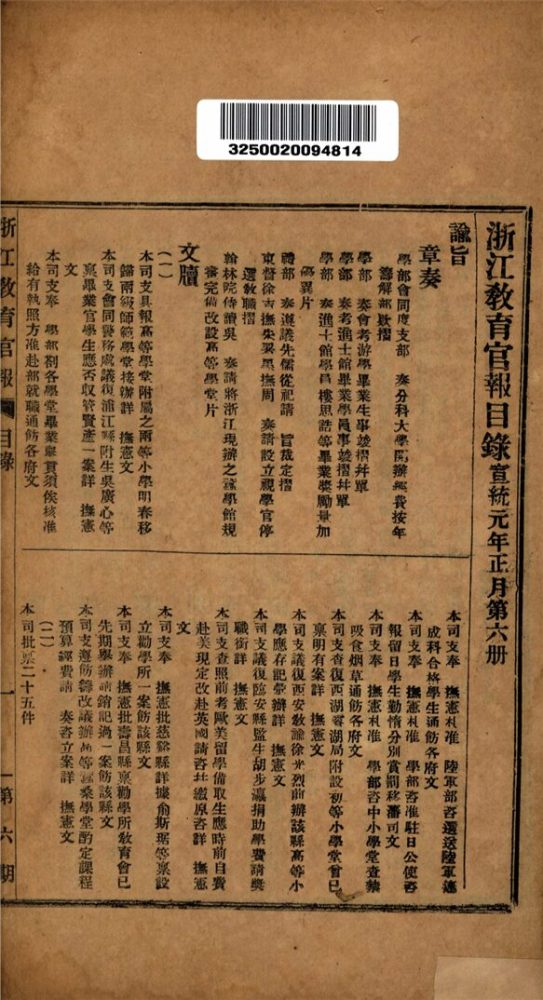 3250020094814
浙江教育官報目錄 宣統元年正月第六册
諭旨
章奏
學部會同度支部 奏分科大學開辦經費按年
籌解部款摺
學部 奏會考游學畢業生事竣摺幷單
學部 奏考進士館畢業學員事竣摺幷單
學部 奏進士館學員樓思誥等畢業奬勵量加
優異片
禮部 奏遵議先儒從祀請 旨裁定摺
東督徐吉撫朱黑撫周 奏請設立視學官停
選敎職摺
翰林院侍讀吳 奏請將浙江現辦之 學館規
畫完備改設高等學堂片
文牘
(一)
本司支具報高等學堂附屬之兩等小學明春移
歸兩級師範學堂接辦詳 撫憲文
本司支會同 移處議復浦江縣附生吳廣心等
稟畢業官學生應否收管賢產一案詳 撫憲
文
本司支奉 學部劄各學堂畢業舉貢須俟核准
給有執照方准赴部就職通飭各府文
本司支奉 撫憲札准 陸軍部咨選送陸軍速
成科合格學生通飭各府文
本司支奉 撫憲札准 學部咨准駐日公使咨
報留日學生勤惰分別賞罰移藩司文
本司支奉 撫憲札准 學部咨中小學堂查禁
吸食烟草通飭各府文
本司支查復西湖 湖局附設初等小學堂曾已
稟明有案詳 撫憲文
本司支議復西安敎諭徐光烈前辦該縣高等小
學應存記彙辦詳 撫憲文
本司支議復臨安縣監生胡步瀛捐助學費請奬
職銜詳 撫憲文
本司支查照前考歐美留學備取生應時前自費
赴美現定改赴英國請咨幷繳原咨詳 撫憲
文
本司支奉 撫憲批慈谿縣詳據俞斯琚等稟設
立勸學所一案飭該縣文
本司支奉 撫憲批壽昌縣稟勸學所敎育會已
先期舉辦請銷記過一案飭該縣文
本司支遵飭籌改議辦 等蠶桑學堂酌定課程
預算經費請 奏咨立案詳 撫憲文
(二)
本司批稟二十五件
浙江教育官報 目錄 一 第六期